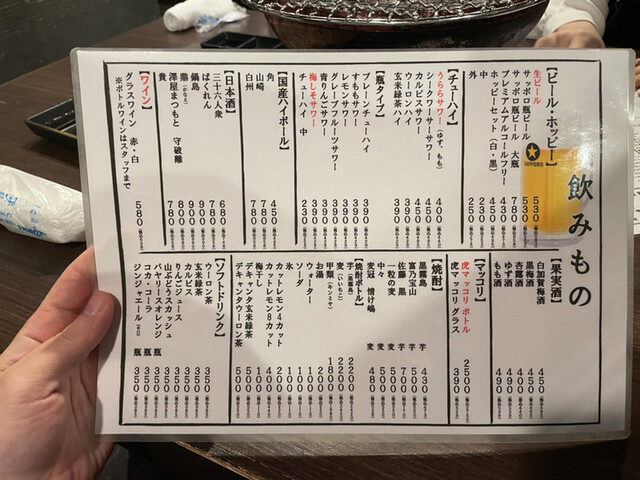 飲みもの
【ビール・ホッピー】
生ビール 530
サッポロ瓶ビール 530
サッポロ瓶ビール 大瓶
プレミアムアルコールフリー
ホッピーセット(白・黒) 450
中 250
外 250
【チューハイ】
うららサワー(ゆず、もも) 400
シークワーサーサワー 400
カルピスサワー
ウーロンハイ
玄米緑茶ハイ
【瓶タイプ】
プレーンチューハイ 300
すももサワー 390
レモンサワー 390
グレープフルーツサワー 390
青りんごサワー 390
梅しそサワー 390
チューハイ 中 230
【国産ハイボール】
角 450
山崎 700
白州 700
【日本酒】
三十六人衆 600
ばくれん
鍋島 900
(かなえ) 900
澤屋まつもと 守破離
貴 780
【ワイン】
グラスワイン 赤・白 580
※ボトルワインはスタッフまで
【果実酒】
白加賀梅酒 450
黒梅酒
杏露酒 400
ゆず酒 490
もも酒 490
【マッコリ】
虎マッコリ ボトル 2500
虎マッコリ グラス 390
【焼酎】
黒霧島 芋 400
富乃宝山 芋
佐藤 黒 芋 700
一粒の麦 麦
中々 麦
麦冠 情け嶋 麦 480
【焼酎ボトル】
芋(黒霧島) 2200
麦(いいちこ) 2200
甲類(キンミヤ) 1800
お湯
ウォーター
ソーダ
氷 100
カットレモン4カット 200
カットレモン8カット 400
梅干し 100
デキャンタ玄米緑茶 500
デキャンタウーロン茶 500
【ソフトドリンク】
ウーロン茶 350
玄米緑茶 350
カルピス 350
りんごジュース 350
山ぶどうスカッシュ 350
バヤリースオレンジ 瓶 350
コカ・コーラ 瓶 350
ジンジャエール 瓶 350
SAPPORO